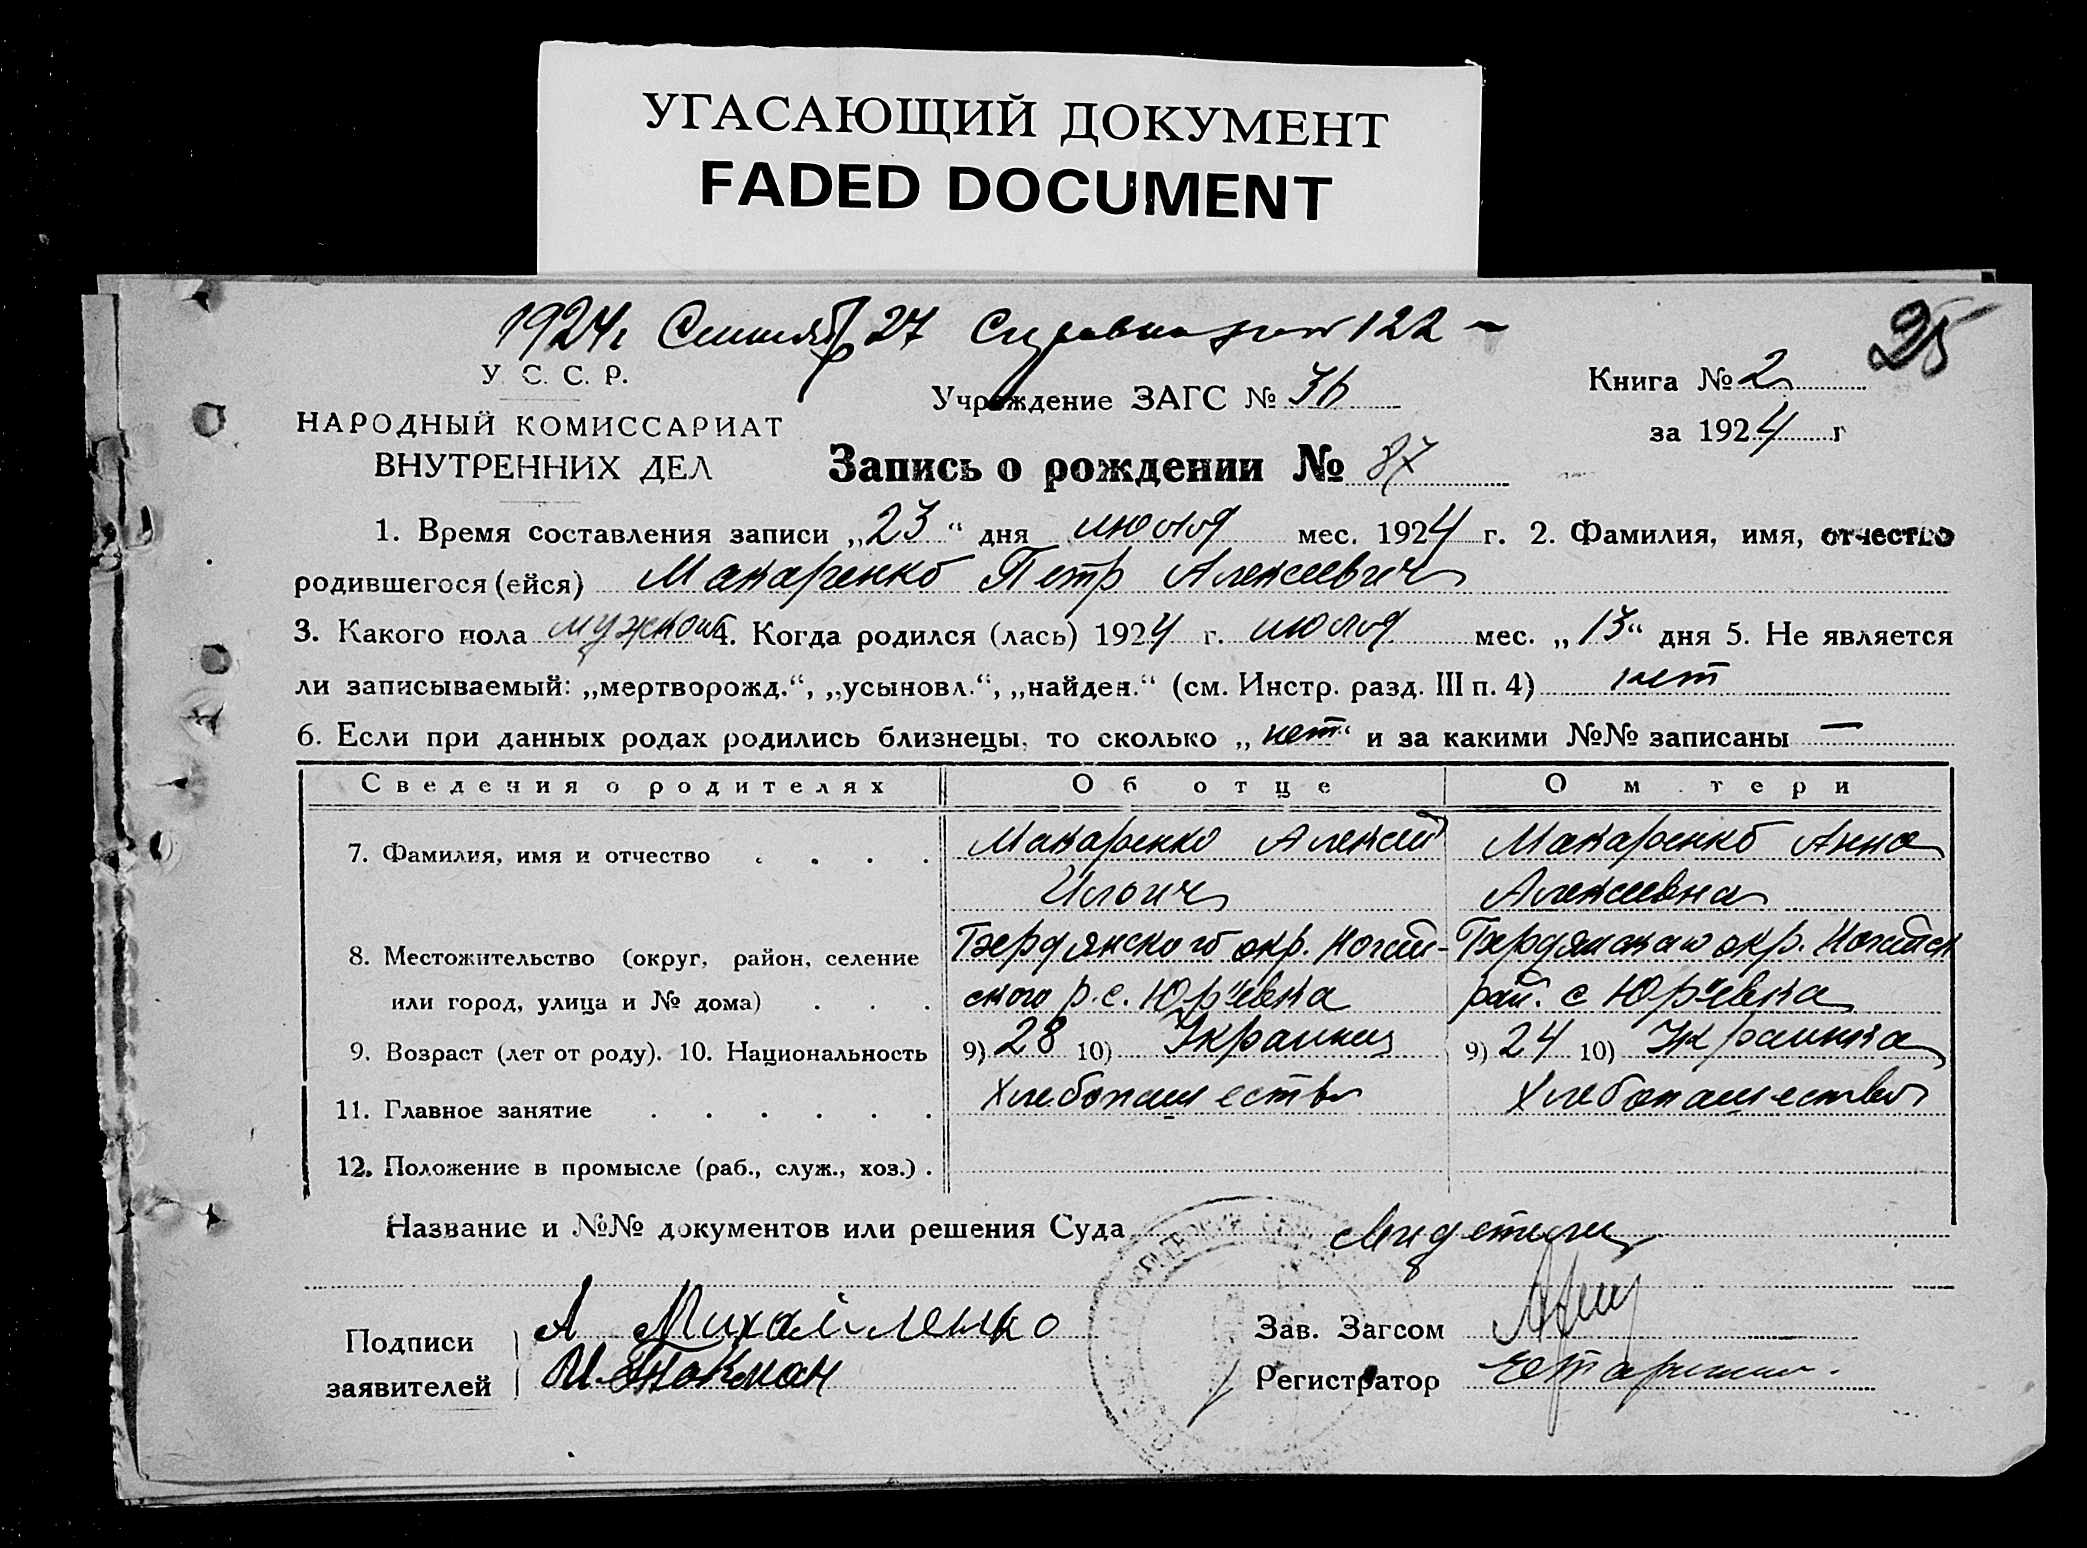 УГАСАЮЩИЙ ДОКУМЕНТ
FADED DOCUMENT
1924 г Сентяб 27 122
25
У. С. С. Р.
НАРОДНЫЙ КОМИССАРИАТ
ВНУТРЕННИХ ДЕЛ
Учреждение ЗАГС № 36
Книга № 2
за 1924 г
Запись о рождении № 87
1. Время составления записи „23“ дня июля мес. 1924 г. 2. Фамилия, имя, отчество
родившегося (ейся) Макаренко Петр Алексеевич
3. Какого пола мужской 4. Когда родился (лась) 1924 г. июля мес. „13“ дня 5. Не является
ли записываемый: „мертворожд.“, „усыновл.“, „найден.“ (см. Инстр. разд. III п. 4) нет
6. Если при данных родах родились близнецы, то сколько „нет“ и за какими №№ записаны —
Сведения о родителях Об отце О м тери
7. Фамилия, имя и отчество . . . . Макаренко Алексей Макаренко Анна
Ильич Алексеевна
8. Местожительство (округ, район, селение Бердянского окр. Ногай- Бердянского окр. Ногайск
или город, улица и № дома) . . . ского р. с. Юр'евка рай. с Юр'евка
9. Возраст (лет от роду). 10. Национальность 9) 28 10) Украинец 9) 24 10) Украинка
11. Главное занятие . . . . . . Хлебопашество Хлебопашество
12. Положение в промысле (раб., служ., хоз.) .
Название и №№ документов или решения Суда
Подписи
заявителей
А Михайленко
И. Токман
Зав. Загсом
Регистратор